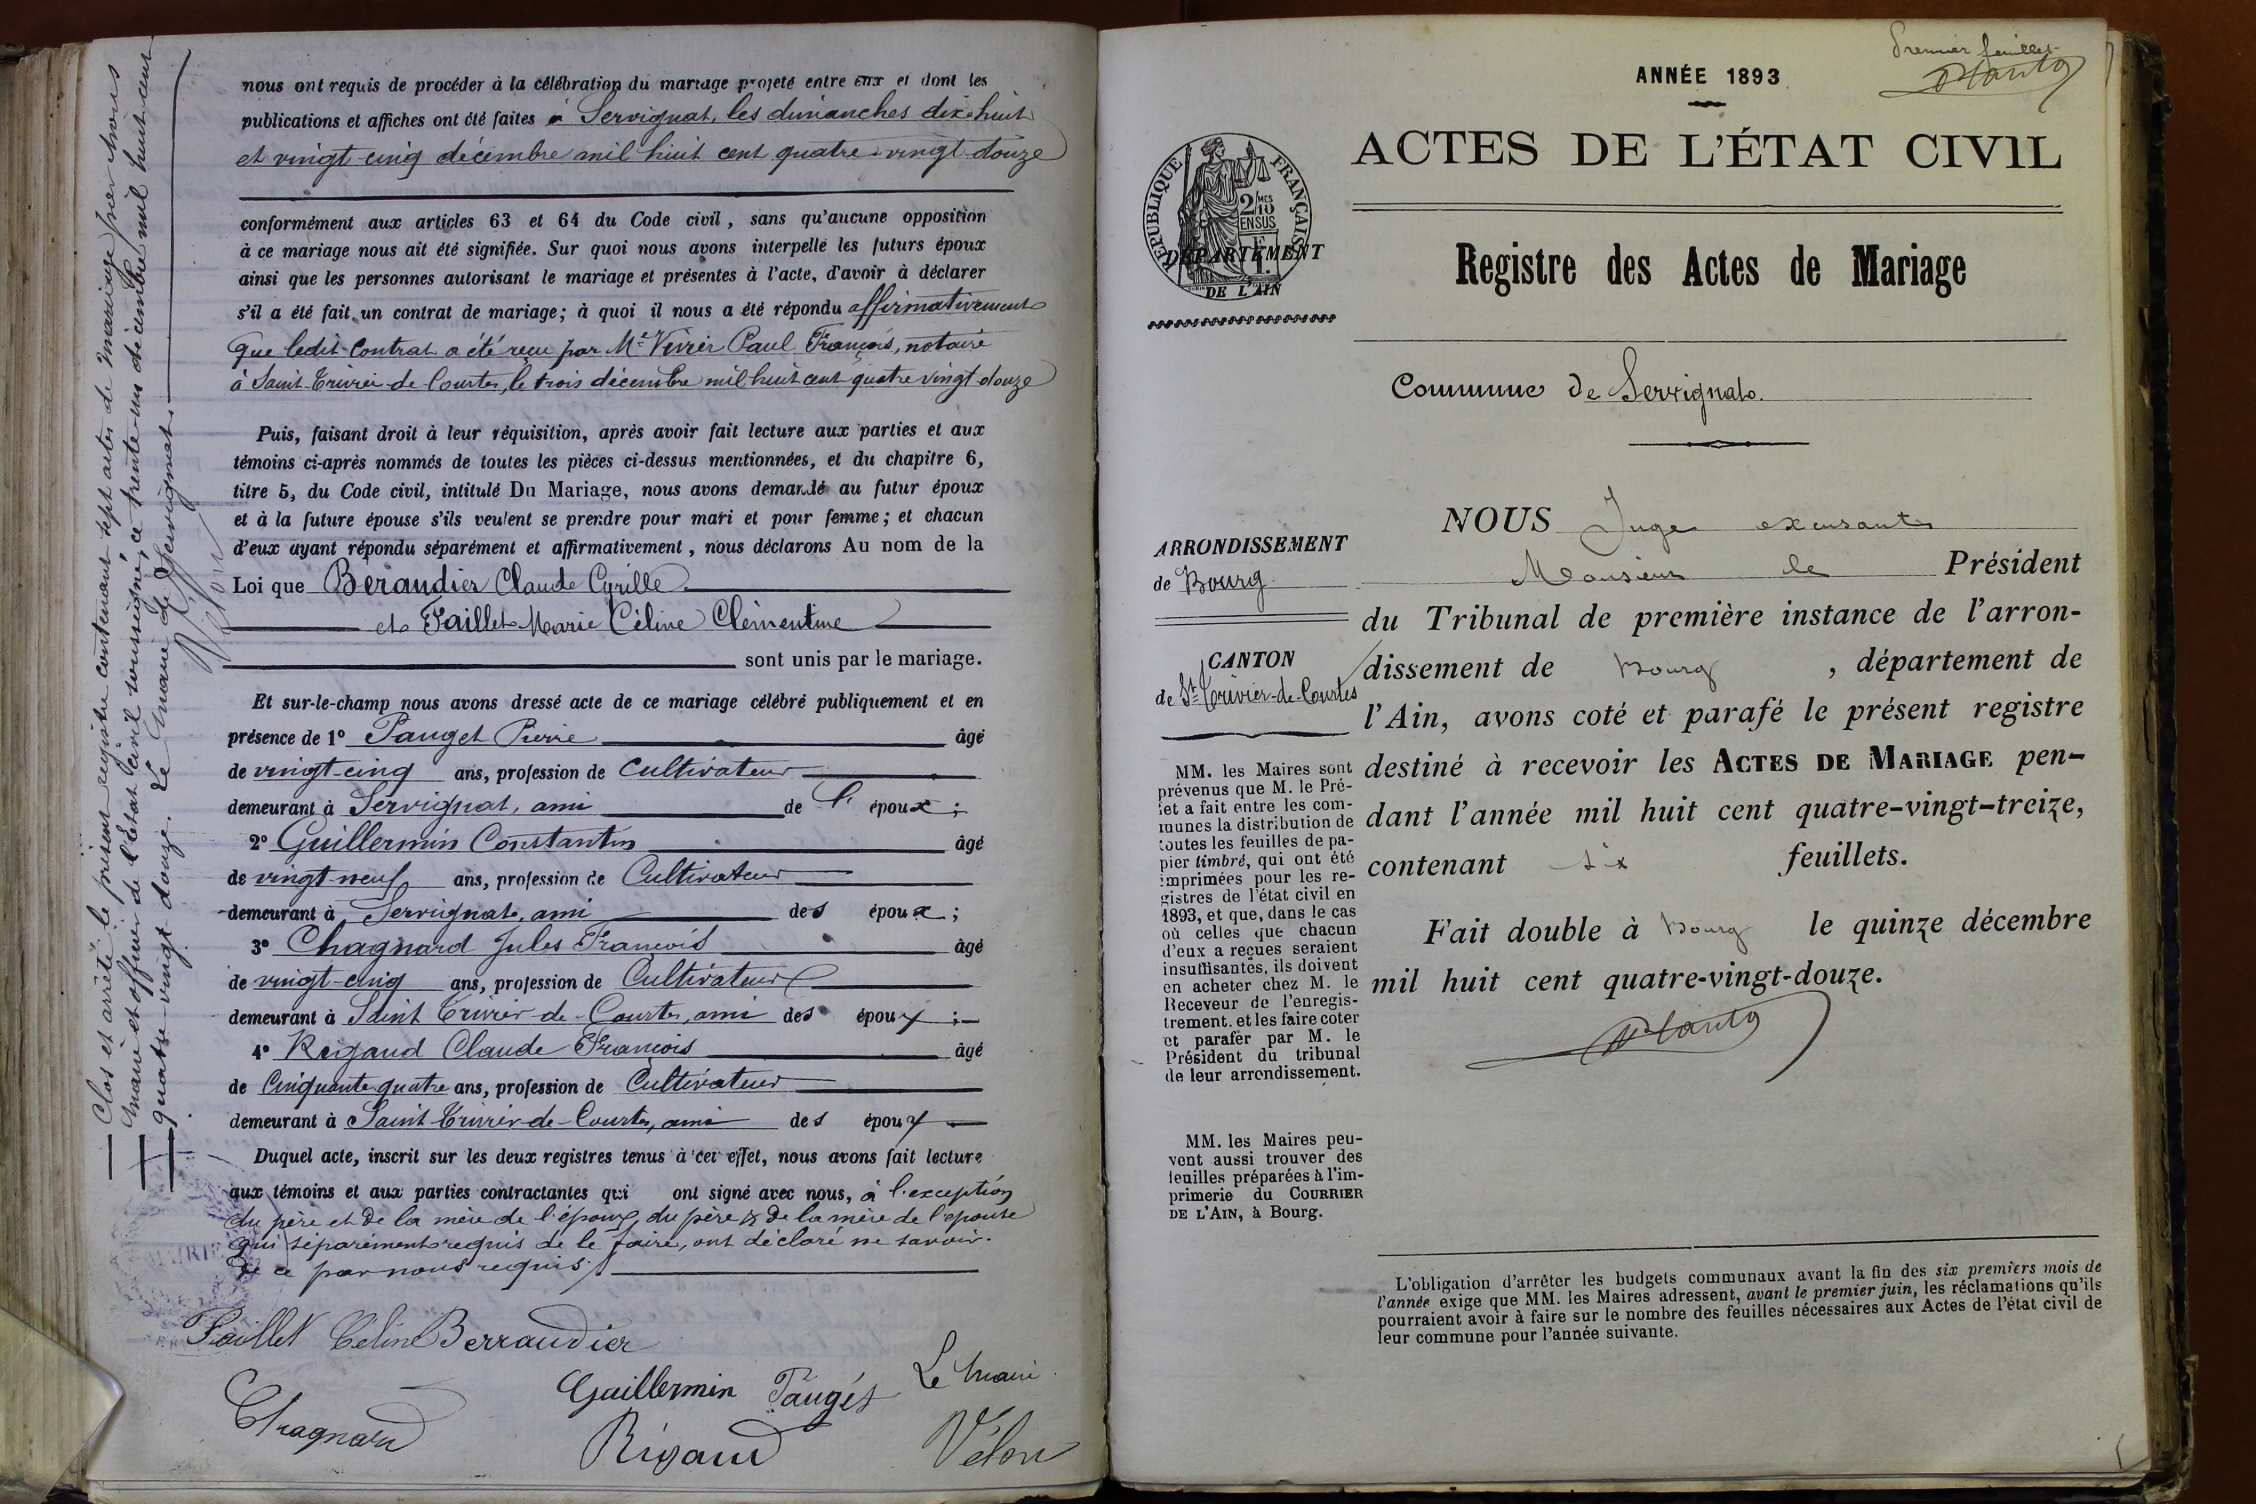 nous ont requis de procéder à la célébration du mariage projeté entre eux et dont les
publications et affiches ont été faites à Servignat, les dimanches dix-huit
et vingt-cinq décembre mil huit cent quatre-vingt-douze
conformément aux articles 63 et 64 du Code civil, sans qu'aucune opposition
à ce mariage nous ait été signifiée. Sur quoi nous avons interpellé les futurs époux
ainsi que les personnes autorisant le mariage et présentes à l'acte, d'avoir à déclarer
s'il a été fait un contrat de mariage; à quoi il nous a été répondu affirmativement
que ledit contrat a été reçu par Me Vivier Paul François, notaire
à Saint-Trivier-de-Courtes, le trois décembre mil huit cent quatre vingt-douze
Puis, faisant droit à leur réquisition, après avoir fait lecture aux parties et aux
témoins ci-après nommés de toutes les pièces ci-dessus mentionnées, et du chapitre 6,
titre 5, du Code civil, intitulé Du Mariage, nous avons demandé au futur époux
et à la future épouse s'ils veulent se prendre pour mari et pour femme; et chacun
d'eux ayant répondu séparément et affirmativement, nous déclarons Au nom de la
Loi que Béraudier Claude Cyrille
et Faillet Marie Céline Clémentine
sont unis par le mariage.
Et sur-le-champ nous avons dressé acte de ce mariage célébré publiquement et en
présence de 1º Pauget Pierre âgé
de vingt-cinq ans, profession de Cultivateur
demeurant à Servignat, ami de l' époux;
2º Guillermin Constantin âgé
de vingt-neuf ans, profession de Cultivateur
demeurant à Servignat, ami des époux;
3º Chagnard Jules François âgé
de vingt-cinq ans, profession de Cultivateur
demeurant à Saint Trivier-de-Courtes, ami des époux;
4º Rigaud Claude François âgé
de Cinquante-quatre ans, profession de Cultivateur
demeurant à Saint-Trivier-de-Courtes, ami des époux
Duquel acte, inscrit sur les deux registres tenus à cet effet, nous avons fait lecture
aux témoins et aux parties contractantes qui ont signé avec nous, à l'exception
du père et de la mère de l'époux, du père & de la mère de l'épouse
qui séparément requis de le faire, ont déclaré ne savoir.
de ce par nous requis.
Faillet Céline Berraudier
Le Maire
Guillermin Paugét
Chagnard
Rigaud
Vélon
Clos et arrêté le présent registre contenant sept actes de mariage par nous
Maire et officier de l'Etat civil soussigné, ce trente-un décembre mil huit cent
quatre-vingt douze. Le Maire de Servignat
Vélon
Premier feuillet
ANNÉE 1893
ACTES DE L'ÉTAT CIVIL
RÉPUBLIQUE FRANÇAISE
2/10MES
EN SUS
DÉPARTEMENT
DE L'AIN
Registre des Actes de Mariage
Commune de Servignat.
ARRONDISSEMENT
de Bourg
CANTON
de St-Trivier-de-Courtes
MM. les Maires sont
prévenus que M. le Pré-
fet a fait entre les com-
munes la distribution de
toutes les feuilles de pa-
pier timbré, qui ont été
imprimées pour les re-
gistres de l'état civil en
1893, et que, dans le cas
où celles que chacun
d'eux a reçues seraient
insuffisantes, ils doivent
en acheter chez M. le
Receveur de l'enregis-
trement. et les faire coter
et parafer par M. le
Président du tribunal
de leur arrondissement.
MM. les Maires peu-
vent aussi trouver des
feuilles préparées à l'im-
primerie du COURRIER
DE L'AIN, à Bourg.
NOUS Juge excusant
Monsieur le Président
du Tribunal de première instance de l'arron-
dissement de Bourg, département de
l'Ain, avons coté et parafé le présent registre
destiné à recevoir les ACTES DE MARIAGE pen-
dant l'année mil huit cent quatre-vingt-treize,
contenant six feuillets.
Fait double à Bourg le quinze décembre
mil huit cent quatre-vingt-douze.
L'obligation d'arrêter les budgets communaux avant la fin des six premiers mois de
l'année exige que MM. les Maires adressent, avant le premier juin, les réclamations qu'ils
pourraient avoir à faire sur le nombre des feuilles nécessaires aux Actes de l'état civil de
leur commune pour l'année suivante.